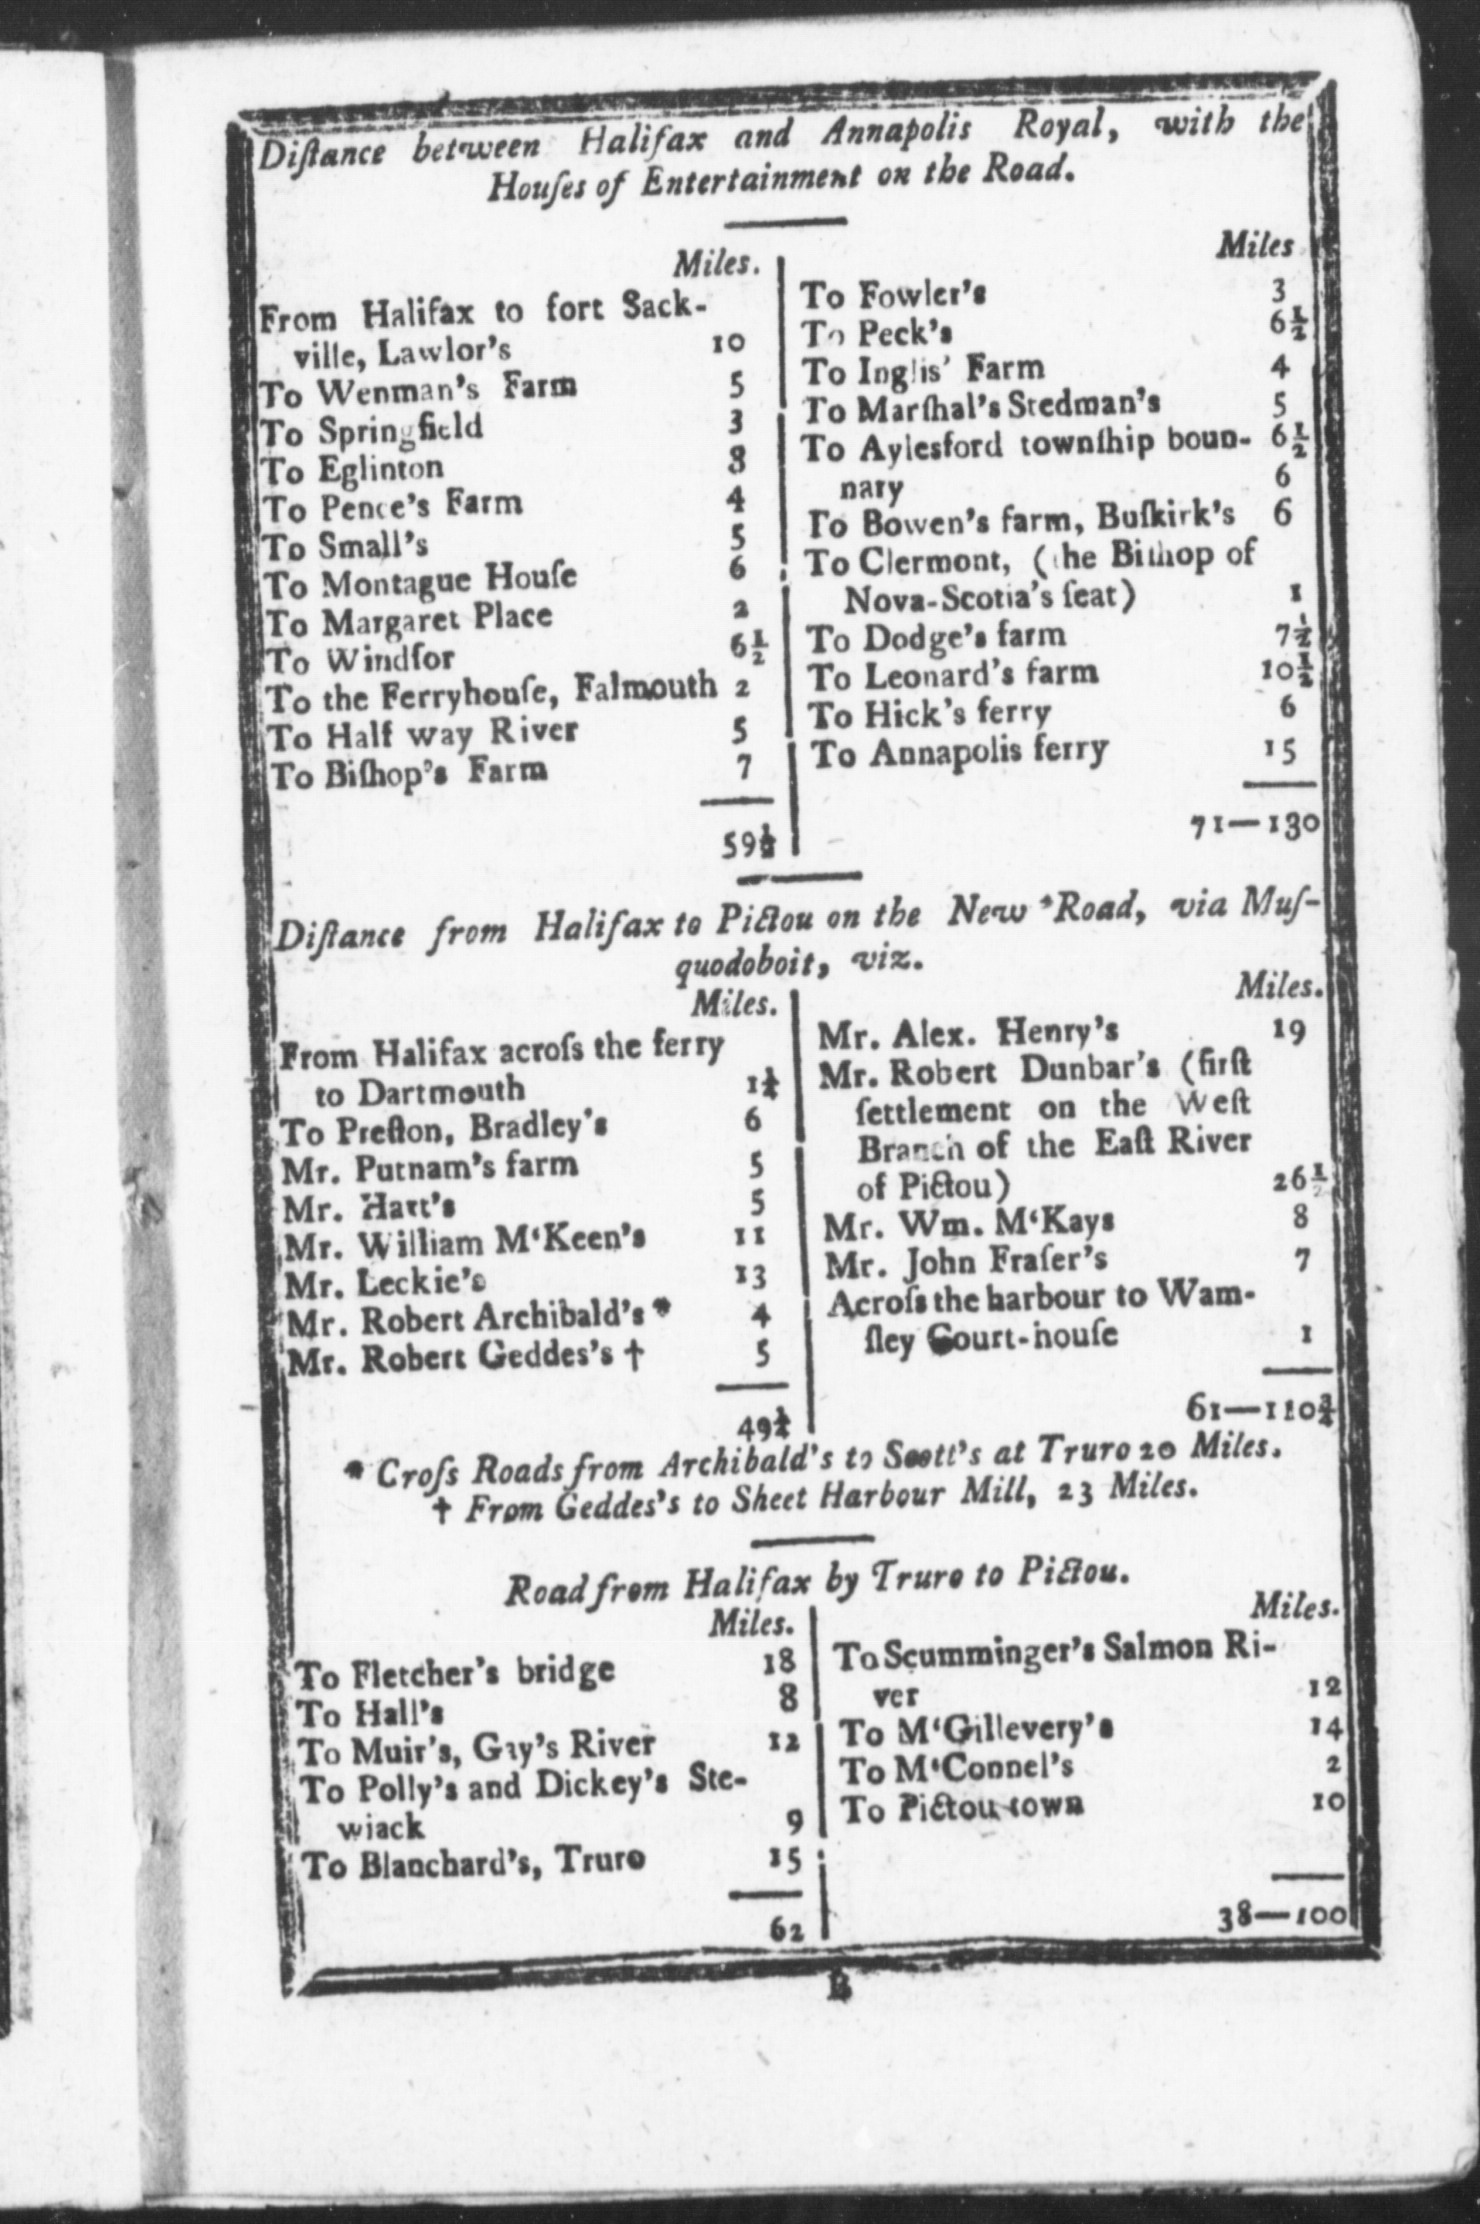 Diſtance between Halifax and Annapolis Royal, with the
Houſes of Entertainment on the Road.
Miles.
From Halifax to fort Sack-
ville, Lawlor's 10
To Wenman's Farm 5
To Springfield 3
To Eglinton 8
To Pence's Farm 4
To Small's 5
To Montague Houſe 6
To Margaret Place 2
To Windſor 6½
To the Ferryhouſe, Falmouth 2
To Half way River 5
To Biſhop's Farm 7
59½
Miles
To Fowler's 3
To Peck's 6½
To Inglis' Farm 4
To Marſhal's Stedman's 5
To Aylesford townſhip boun- 6½
nary 6
To Bowen's farm, Buſkirk's 6
To Clermont, (the Biſhop of
Nova-Scotia's ſeat) 1
To Dodge's farm 7½
To Leonard's farm 10½
To Hick's ferry 6
To Annapolis ferry 15
71—130
Diſtance from Halifax to Pictou on the New Road, via Muſ-
quodoboit, viz.
Miles.
From Halifax acroſs the ferry
to Dartmouth 1¼
To Preſton, Bradley's 6
Mr. Putnam's farm 5
Mr. Hart's 5
Mr. William M‘Keen's 11
Mr. Leckie's 13
Mr. Robert Archibald's * 4
Mr. Robert Geddes's † 5
49¼
Miles.
Mr. Alex. Henry's 19
Mr. Robert Dunbar's (firſt
ſettlement on the Weſt
Branch of the Eaſt River
of Pictou) 26½
Mr. Wm. M‘Kays 8
Mr. John Fraſer's 7
Acroſs the harbour to Wam-
ſley Court-houſe 1
61—110¾
* Croſs Roads from Archibald's to Scott's at Truro 20 Miles.
† From Geddes's to Sheet Harbour Mill, 23 Miles.
Road from Halifax by Truro to Pictou.
Miles.
To Fletcher's bridge 18
To Hall's 8
To Muir's, Gay's River 12
To Polly's and Dickey's Ste-
wiack 9
To Blanchard's, Truro 15
62
Miles.
To Scumminger's Salmon Ri-
ver 12
To M‘Gillevery's 14
To M‘Connel's 2
To Pictou town 10
38—100
B